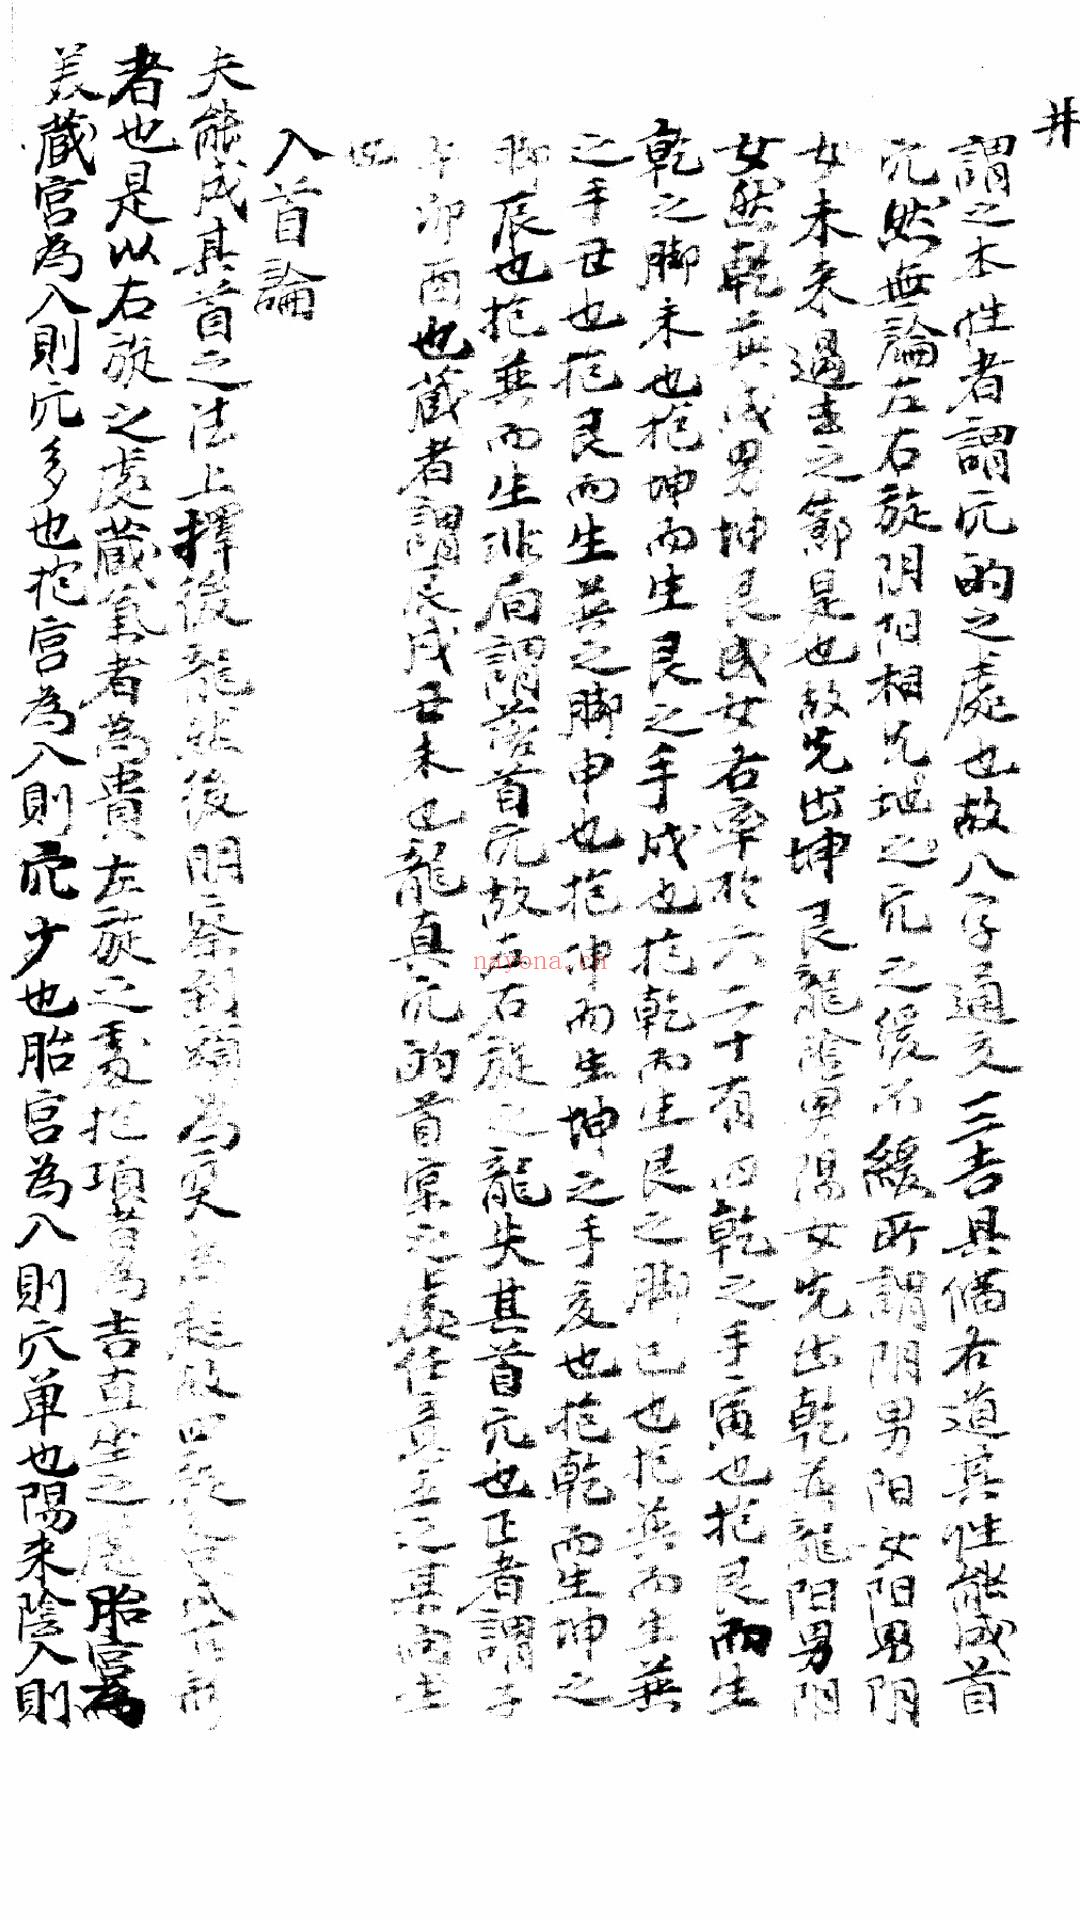 井
謂之本性者謂穴的之處也故八字通交三吉具備右道其性能成首
穴然無論左右旋阴阳相先地之穴之後不緩所謂阴男阳女阳男阴
女未来過去之節是也故先出坤艮龍陰男陽女先出乾巽龍阳男阴
女然乾巽成男坤艮成女右率於六二十有四乾之手寅也抱艮而生
乾之脚未也抱坤而生艮之手戌也抱乾而生艮之脚巳也抱巽而生巽
之手丑也抱艮而生巽之脚申也抱坤而生坤之手亥也抱乾而生坤之
脚辰也抱巽而生非向謂落首穴故左右旋之龍失其首穴也正者謂子
午卯酉也藏者謂辰戌丑未也龍真穴的首之處任其立之其向生
也
入首論
夫能成其首之法上擇後龍然後明察到頭為故四之成
者也是以右旋之處藏氣者為貴左旋之處抱項者為吉直坐之處胎宮為
美藏宮為入則穴多也抱宮為入則穴少也胎宮為入則穴单也陽来陰入則
nayona.cn